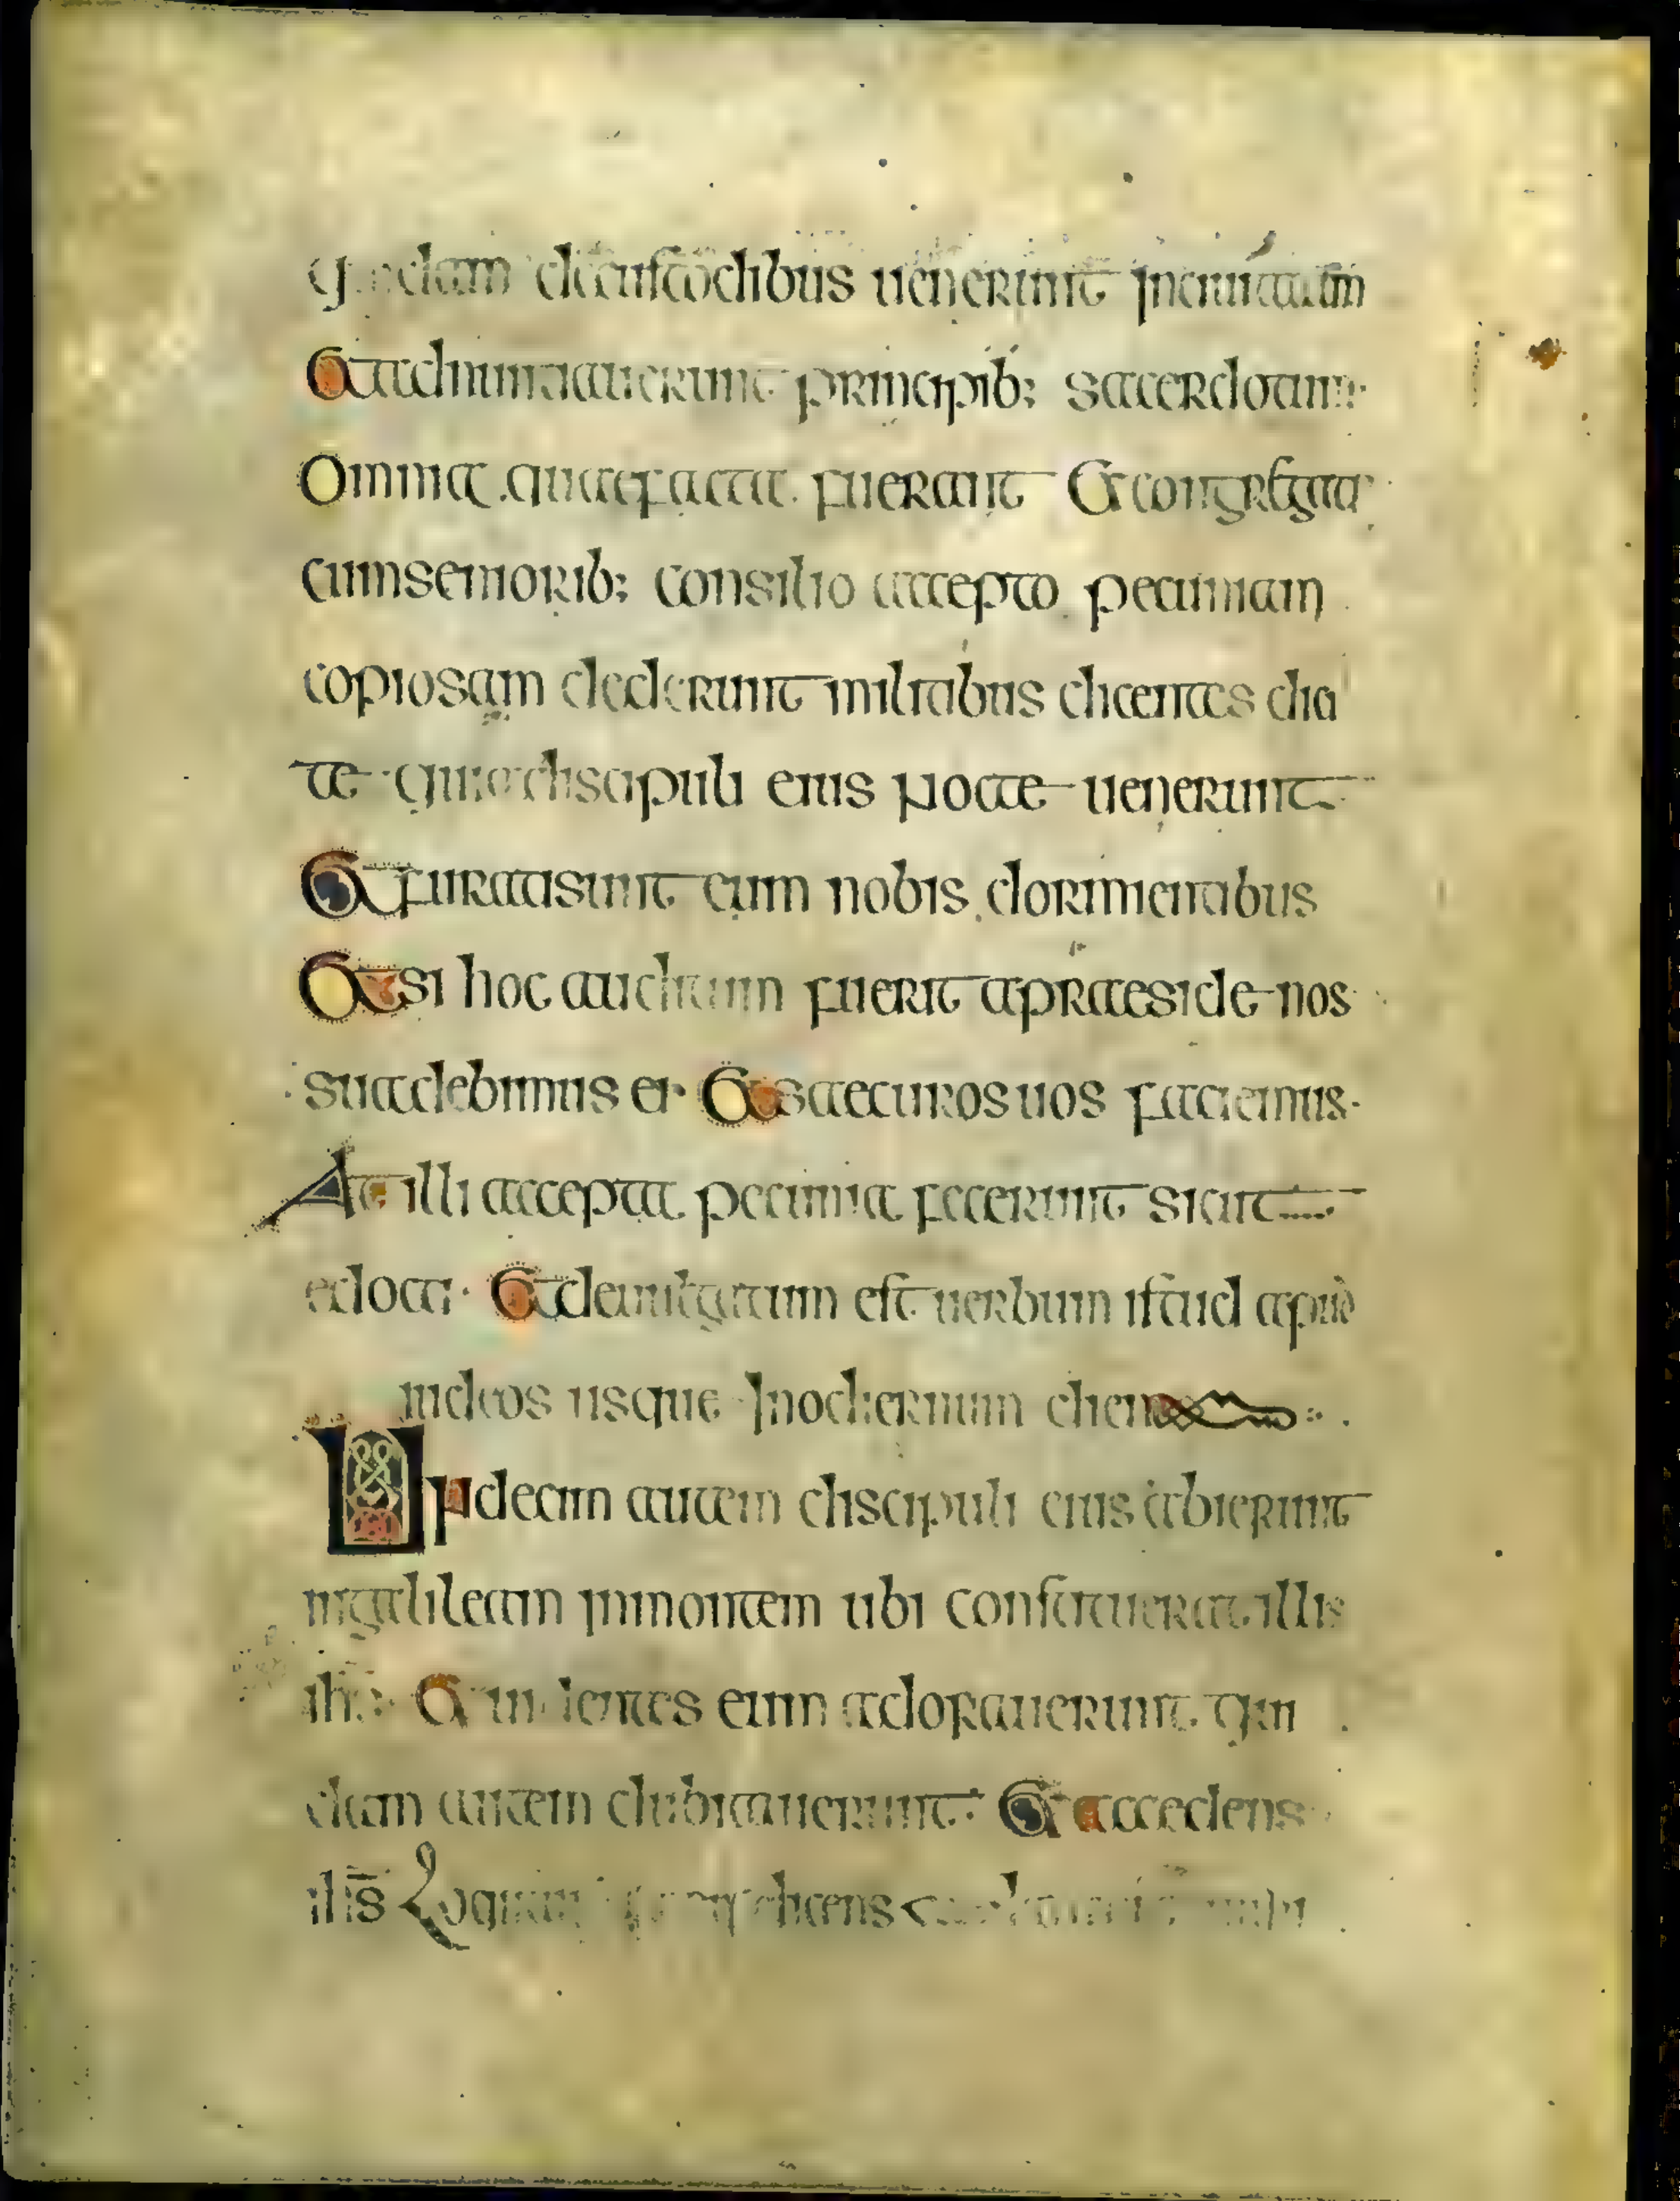 quidam de custodibus uenerunt in ciuitatem
Et adnuntiauerunt principib; sacerdotum
Omnia quae facta fuerant Et congregati
cum seniorib; consilio accepto pecuniam
copiosam dederunt militibus dicentes dici
te quia discipuli eius nocte uenerunt
Et furati sunt eum nobis dormientibus
Et si hoc auditum fuerit apraeside nos
suadebimus ei· Et saecuros uos faciemus·
At illi accepta pecunia fecerunt sicut
edocti· Et deuulgatum est uerbum istud apud
iudeos usque Inodiernum diem
Undecim autem discipuli eius abierunt
ingalileam inmontem ubi constituerat illis
ihs· Et uidentes eum adorauerunt quı
dam autem dubitauerunt· Et accedens
ihs Loqutus dicens